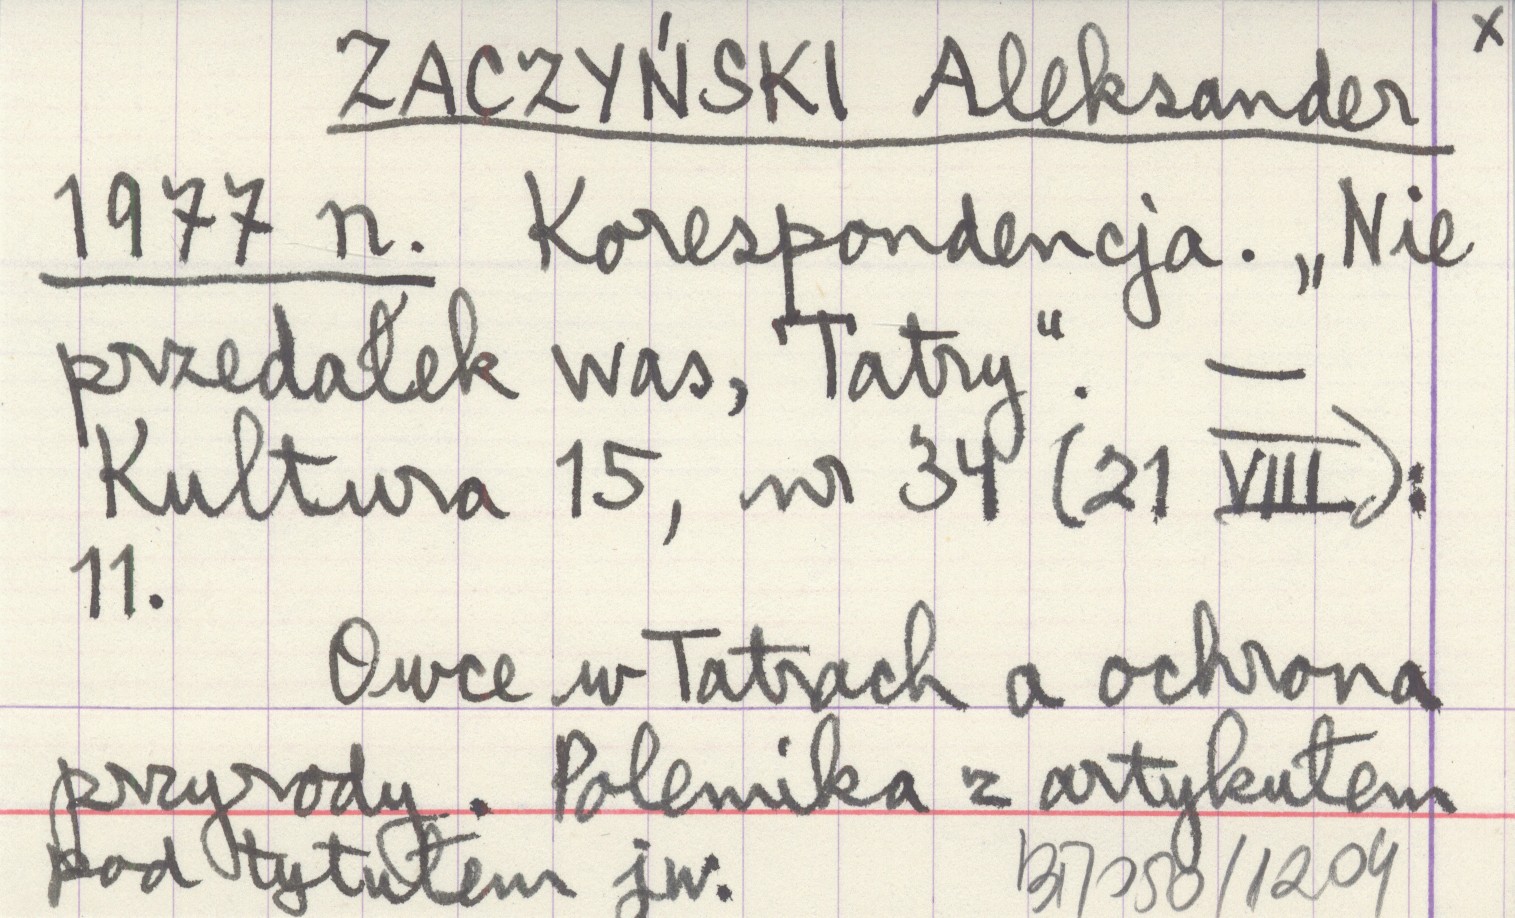 x
ZACZYŃSKI Aleksander
1977 n. Korespondencja. „Nie
przedałek was, Tatry". —
Kultura 15, nr 34 (21 VIII):
11.
Owce w Tatrach a ochrona
przyrody. Polemika z artykułem
pod tytułem jw.